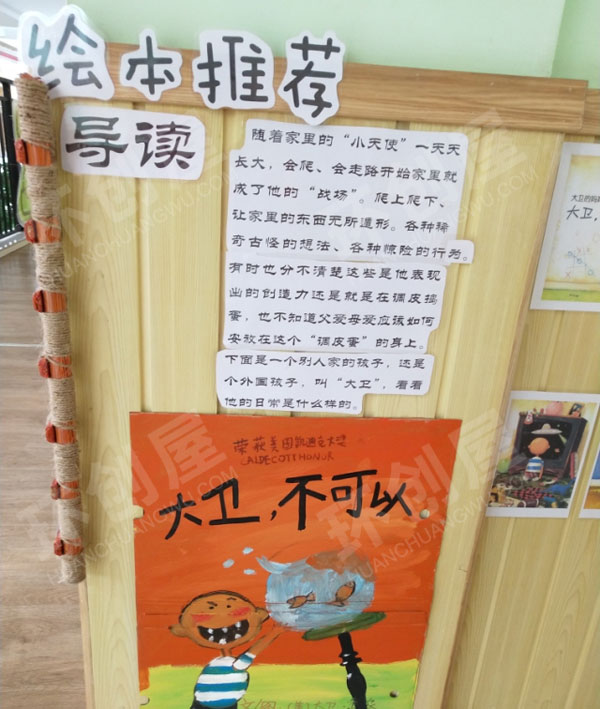 绘本推荐
导读
随着家里的“小天使”一天天
长大，会爬、会走路开始家里就
成了他的“战场”。爬上爬下、
让家里的东西无所遁形。各种稀
奇古怪的想法、各种惊险的行为。
有时也分不清楚这些是他表现
出的创造力还是就是在调皮捣
蛋，也不知道父爱母爱应该如何
安放在这个“调皮蛋”的身上。
下面是一个别人家的孩子，还是
个外国孩子，叫“大卫”，看看
他的日常是什么样的。
荣获美国凯迪克大奖
CALDECOTT HONOR
大卫，不可以
大卫，
环创屋
HUANCHUANGWU.COM